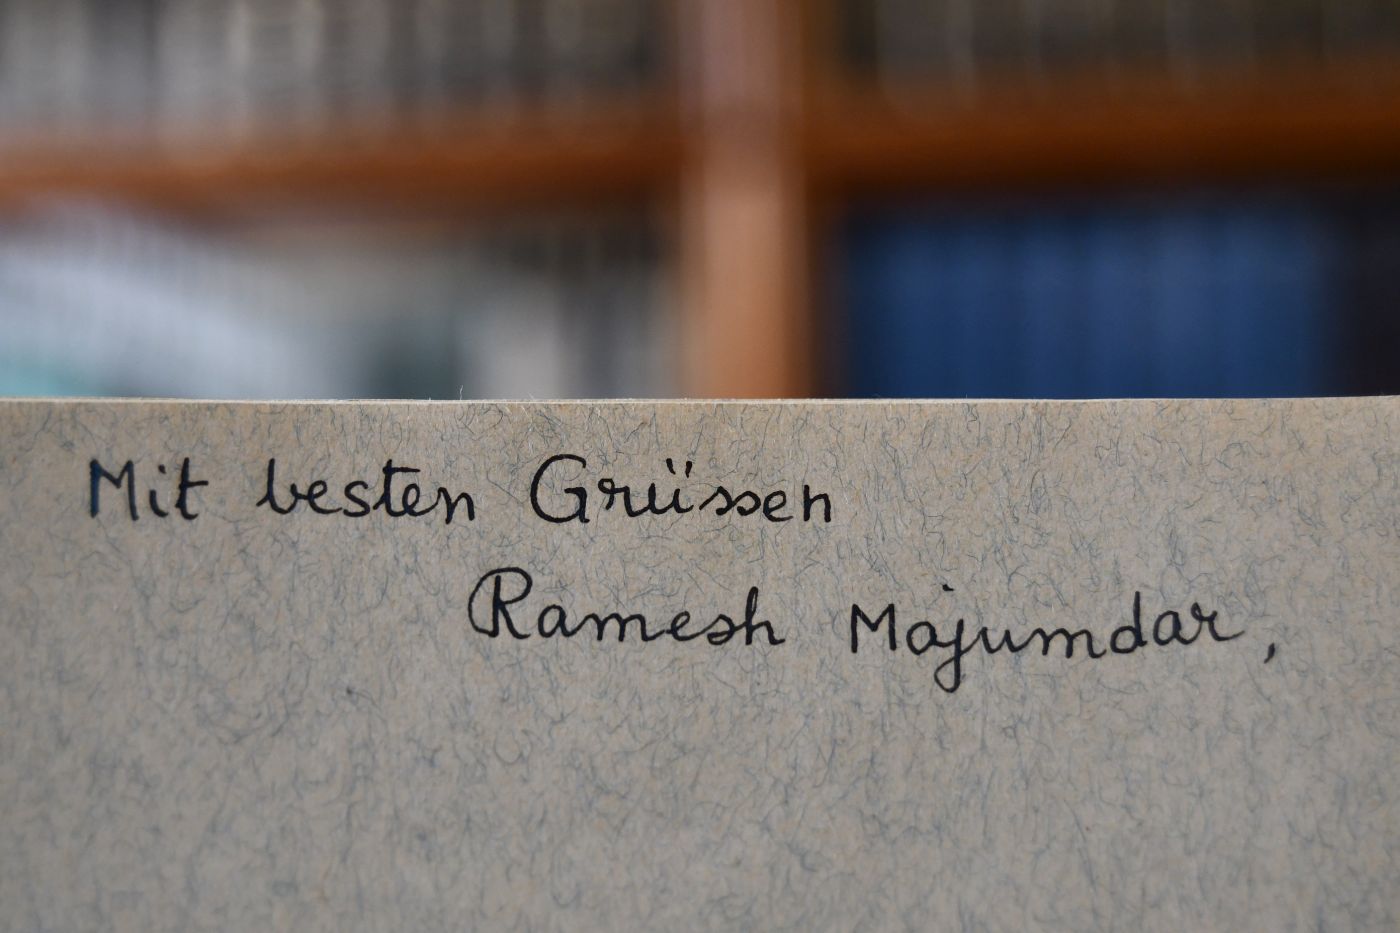 Mit besten Grüssen
Ramesh Majumdar,